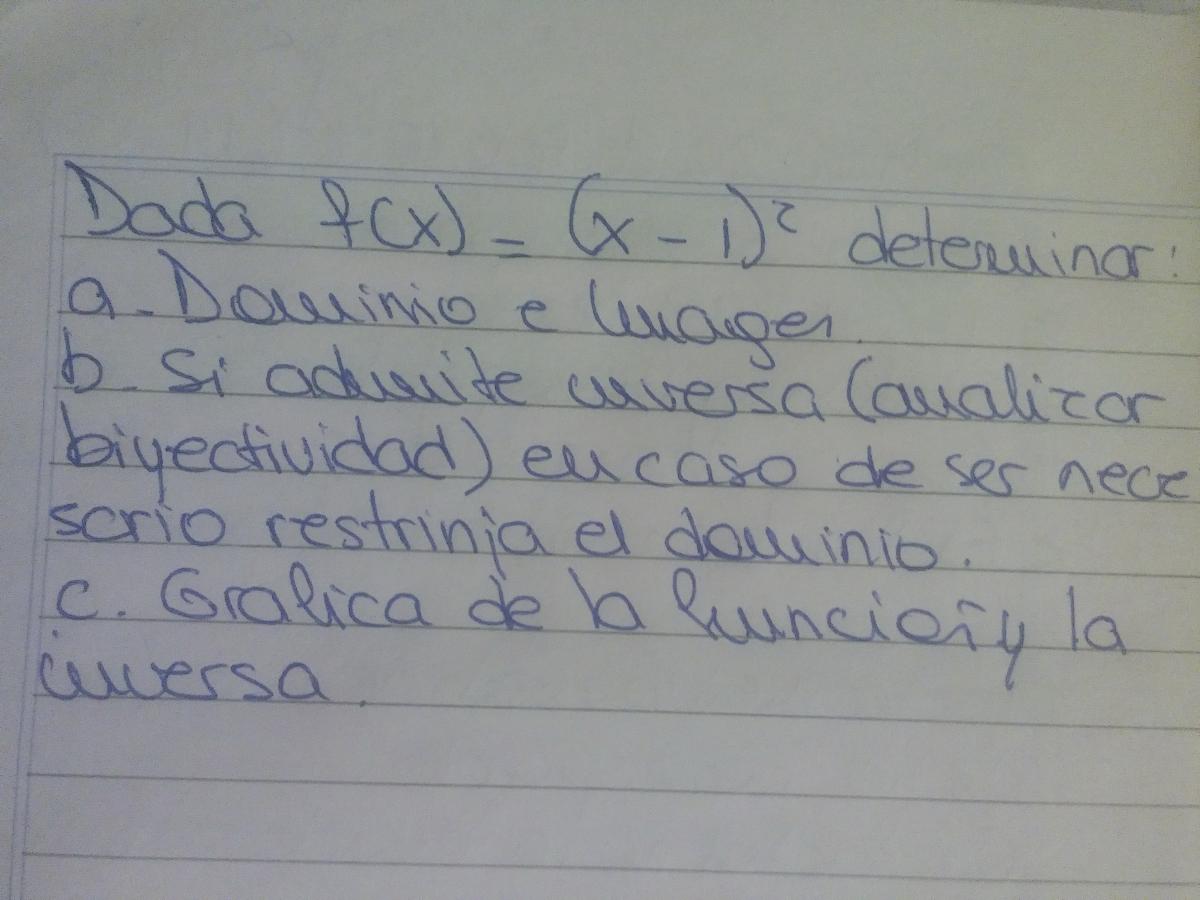 Dada f(x) = (x - 1)² determinar:
a. Dominio e Imagen.
b. Si admite inversa (analizar
biyectividad) en caso de ser nece
sario restrinja el dominio.
c. Grafica de la función y la
inversa.